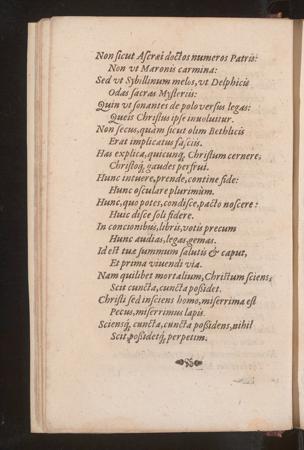 Non sicut Ascræi doctos numeros Patris:
Non vt Maronis carmina:
Sed vt Sibyllinum melos, vt Delphicis
Odas sacras Mysteriis:
Quin vt sonantes de polo versus legas:
Queis Christus ipse inuoluitur.
Non secus, quàm sicut olim Bethlicis
Erat implicatus fasciis.
Has explica, quicunq́, Christum cernere,
Christoq́, gaudes perfrui.
Hunc intuere, prende, contine fide:
Hunc osculare plurimùm.
Hunc, quo potes, condisce, pacto noscere:
Huic disce soli fidere.
In concionibus, libris, votis precum
Hunc audias, legas, gemas.
Id est tuæ summum salutis & caput,
Et prima viuendi via.
Nam quilibet mortalium, Christum sciens,
Scit cuncta, cuncta poßidet.
Christi sed insciens homo, miserrima est
Pecus, miserrimus lapis.
Sciensq́, cuncta, cuncta poßidens, nihil
Scit, poßidetq́, perpetim.